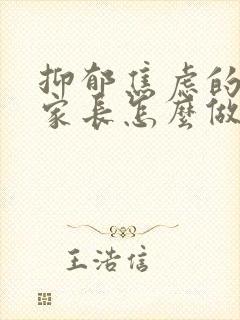 抑郁焦虑的
家长怎麼做
王浩信